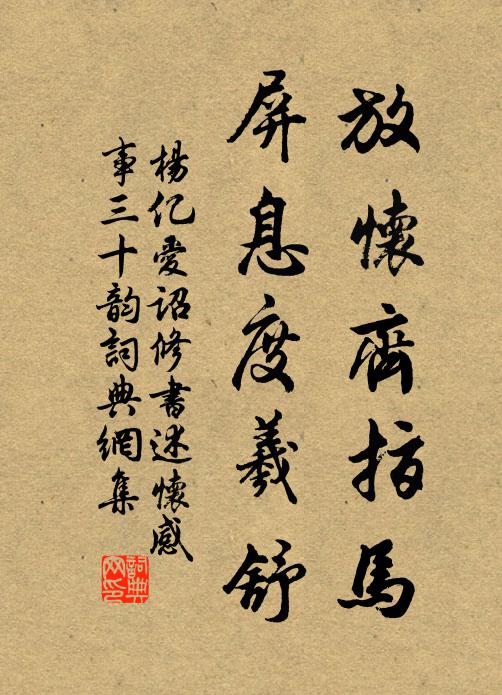 放懷齊指馬
屏息度羲舒
楊亿愛詔修書述懷感
事三十韵詞典網集
詞典
网印